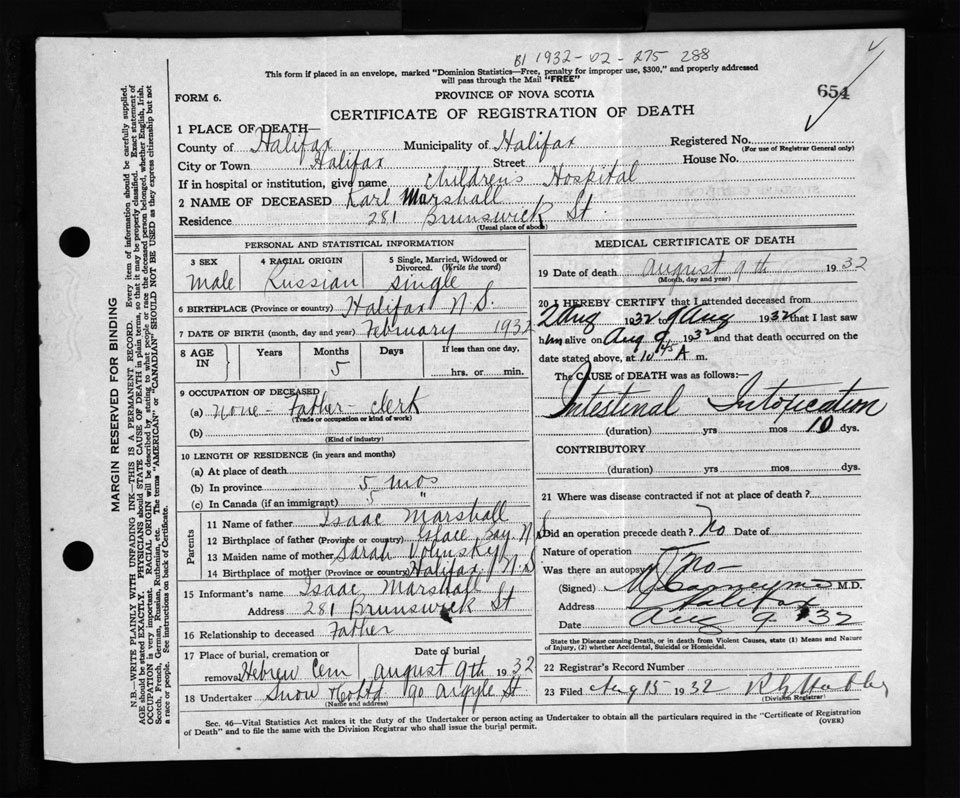 B1 1932-02-275 288
This form if placed in an envelope, marked "Dominion Statistics—Free, penalty for improper use, $300," and properly addressed
will pass through the Mail "FREE"
FORM 6.
PROVINCE OF NOVA SCOTIA
654
CERTIFICATE OF REGISTRATION OF DEATH
1 PLACE OF DEATH—
County of Halifax Municipality of Halifax Registered No.
(For use of Registrar General only)
City or Town Halifax Street House No.
If in hospital or institution, give name Childrens Hospital
2 NAME OF DECEASED Karl Marshall
Residence 281 Brunswick St.
(Usual place of abode)
PERSONAL AND STATISTICAL INFORMATION
3 SEX 4 RACIAL ORIGIN 5 Single, Married, Widowed or
Divorced. (Write the word)
Male Russian single
6 BIRTHPLACE (Province or country) Halifax N.S.
7 DATE OF BIRTH (month, day and year) February 1932
8 AGE IN Years Months Days If less than one day,
5 hrs. or min.
9 OCCUPATION OF DECEASED
(a) None - Father - clerk
(Trade or occupation or kind of work)
(b)
(Kind of industry)
10 LENGTH OF RESIDENCE (in years and months)
(a) At place of death
(b) In province 5 mos
(c) In Canada (if an immigrant) 5 "
Parents
11 Name of father Isaac Marshall
12 Birthplace of father (Province or country) Glace Bay N S
13 Maiden name of mother Sarah Volinsky
14 Birthplace of mother (Province or country) Halifax N.S
15 Informant's name Isaac Marshall
Address 281 Brunswick St
16 Relationship to deceased Father
17 Place of burial, cremation or Date of burial
removal Hebrew Cem August 9th 1932
18 Undertaker Snow & Co Ltd 90 Argyle St
(Name and address)
MEDICAL CERTIFICATE OF DEATH
19 Date of death August 9th 1932
(Month, day and year)
20 I HEREBY CERTIFY that I attended deceased from
2 Aug 1932 to 9 Aug 1932 that I last saw
him alive on Aug 9 1932 and that death occurred on the
date stated above, at 10 45 A m.
The CAUSE OF DEATH was as follows:
Intestinal Intoxication
(duration) yrs mos 10 dys.
CONTRIBUTORY
(duration) yrs mos dys.
21 Where was disease contracted if not at place of death?
Did an operation precede death? No Date of
Nature of operation
Was there an autopsy? No
(Signed) M.D.
Address Halifax
Date Aug 9 32
State the Disease causing Death, or in death from Violent Causes, state (1) Means and Nature
of Injury, (2) whether Accidental, Suicidal or Homicidal.
22 Registrar's Record Number
23 Filed Aug 15 1932
(Division Registrar)
Sec. 46—Vital Statistics Act makes it the duty of the Undertaker or person acting as Undertaker to obtain all the particulars required in the "Certificate of Registration
of Death" and to file the same with the Division Registrar who shall issue the burial permit.
(OVER)
MARGIN RESERVED FOR BINDING
N.B.—WRITE PLAINLY WITH UNFADING INK—THIS IS A PERMANENT RECORD. Every item of information should be carefully supplied.
AGE should be stated EXACTLY. PHYSICIANS should STATE CAUSE OF DEATH in plain terms, so that it may be properly classified. Exact statement of
OCCUPATION is very important. RACIAL ORIGIN will be described by stating to what people or race the deceased person belonged, whether English, Irish,
Scotch, French, German, Russian, Ruthenian, etc. The terms "AMERICAN" or "CANADIAN" SHOULD NOT BE USED as they express citizenship but not
a race or people. See instructions on back of Certificate.